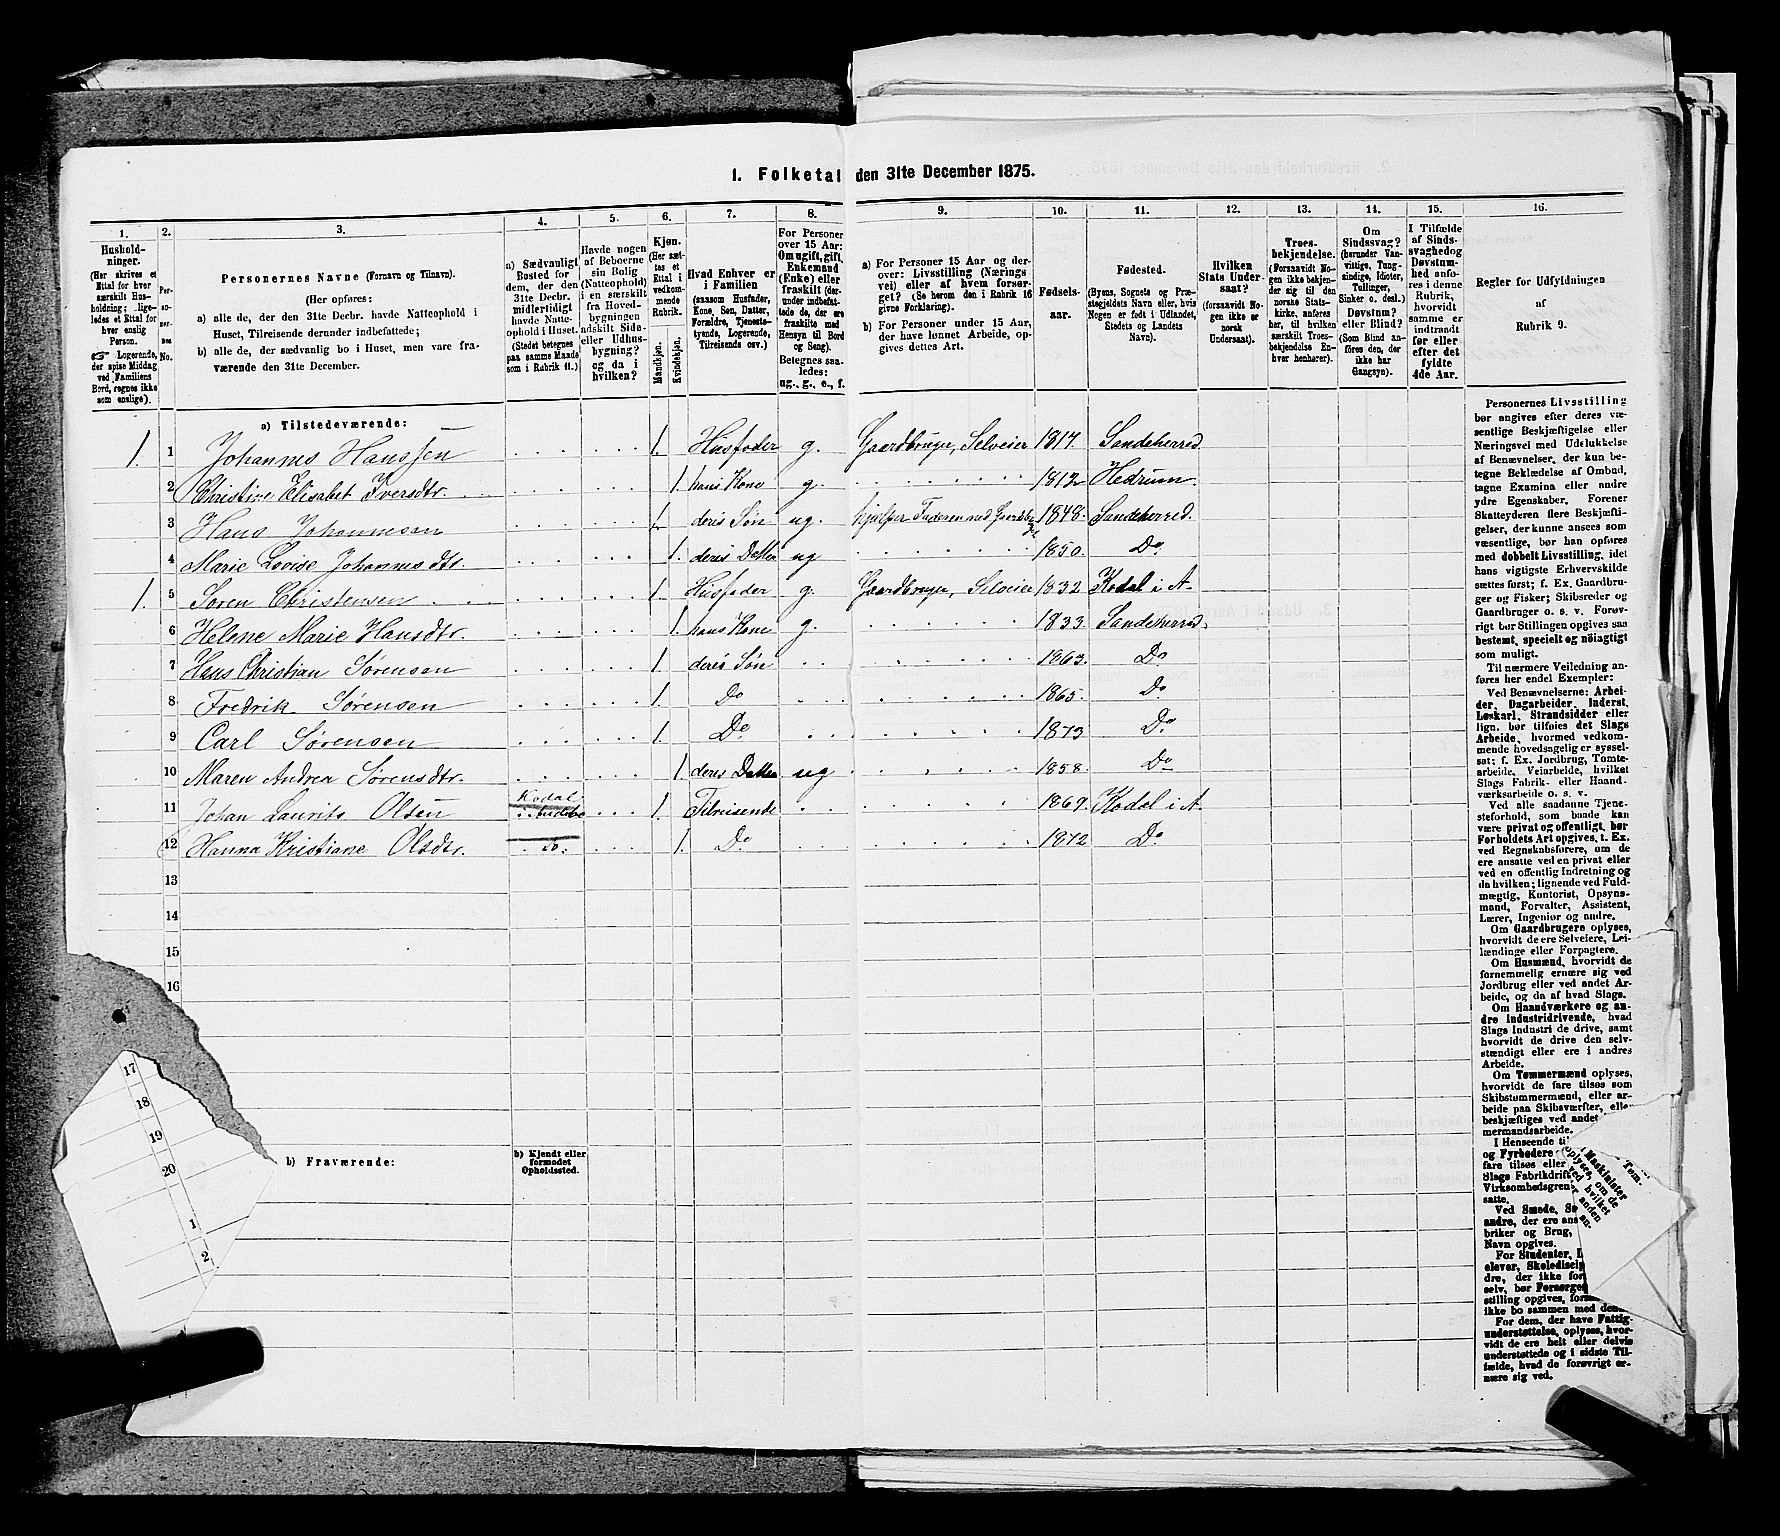 1. Folketal den 31te December 1875.
1. 2. 3. 4. 5. 6. 7. 8. 9. 10. 11. 12. 13. 14. 15. 16.
Hushold-
ninger.
(Her skrives et
Ettal for hver
særskilt Hus-
holdning; lige-
ledes et Ettal for
hver enslig
Person.
☞ Logerende,
der spise Middag
ved Familiens
Bord, regnes ikke
som enslige).
Per-
so-
ner-
nes
No.
Personernes Navne (Fornavn og Tilnavn).
(Her opføres:
a) alle de, der den 31te Decbr. havde Natteophold i
Huset, Tilreisende derunder indbefattede;
b) alle de, der sædvanlig bo i Huset, men vare fra-
værende den 31te December.
a) Sædvanligt
Bosted for
dem, der den
31te Decbr.
midlertidigt
havde Natte-
ophold i Huset.
(Stedet betegnes
paa samme Maade
som i Rubrik 11.)
Havde nogen
af Beboerne
sin Bolig
(Natteophold)
i en særskilt
fra Hoved-
bygningen
adskilt Side-
eller Udhus-
bygning?
og da i
hvilken?
Kjøn.
(Her sæt-
tes et
Ettal i
vedkom-
mende
Rubrik.
Mandkjøn.
Kvindekjøn.
Hvad Enhver er
i Familien
(saasom Husfader,
Kone, Søn, Datter,
Forældre, Tjeneste-
tyende, Logerende,
Tilreisende osv.)
For Personer
over 15 Aar:
Om ugift, gift,
Enkemand
(Enke) eller
fraskilt (der-
under indbefat-
tede de, der ere
fraskilte med
Hensyn til Bord
og Seng).
Betegnes saa-
ledes:
ug., g., e., f.
a) For Personer 15 Aar og der-
over: Livsstilling (Nærings-
vei) eller af hvem forsør-
get? (Se herom den i Rubrik 16
givne Forklaring).
b) For Personer under 15 Aar,
der have lønnet Arbeide, op-
gives dettes Art.
Fødsels-
aar.
Fødested.
(Byens, Sognets og Præ-
stegjeldets Navn eller, hvis
Nogen er født i Udlandet,
Stedets og Landets
Navn).
Hvilken
Stats Under-
saat?
(forsaavidt No-
gen ikke er
norsk
Undersaat).
Troes-
bekjendelse.
(Forsaavidt No-
gen ikke bekjen-
der sig til den
norske Stats-
kirke, anføres
her, til hvilken
særskilt Troes-
bekjendelse En-
hver henhører).
Om
Sindssvag?
(herunder Van-
vittige, Tung-
sindige, Idioter,
Sinker o. desl.)
Døvstum?
eller Blind?
(Som Blind an-
føres den, der
ikke har
Gangsyn).
I Tilfælde
af Sinds-
svaghed og
Døvstum-
het anfø-
res i denne
Rubrik,
hvorvidt
samme er
indtraadt
før eller
efter det
fyldte
4de Aar.
Regler for Udfyldningen
af
Rubrik 9.
a) Tilstedeværende:
1. 1 Johannes Hanssen 1. Husfader g. Gaardbruger, Selveier 1817. Sandeherred
2 Christine Elisabet Iversdtr. 1. hans Kone g. 1812 Hedrum
3 Hans Johannesen 1. deris Søn ug. hjælper Faderen med Gaardbr 1848 Sandeherred.
4 Marie Lovise Johannesdtr. 1. deris Datter ug 1850. Do
1. 5 Søren Christensen 1. Husfader g. Gaardbruger, Selveier 1832 Kodal i A.
6 Helene Marie Hansdtr. 1. hans Kone g. 1833. Sandeherred.
7 Hans Christian Sørensen 1. deris Søn 1863. Do
8 Fredrik Sørensen 1. Do 1865. Do
9 Carl Sørensen 1. Do 1873 Do
10 Maren Andrea Sørensdtr. 1. deris Datter ug 1858. Do
11 Johan Laurits Olsen Kodal i Andebo 1. Tilreisende 1869. Kodal i A
12 Hanna Kristiane Olsdtr. do. 1. Do 1872 Do
13
14
15
16
17
18
19
20
b) Fraværende:
b) Kjendt eller
formodet
Opholdssted.
1
2
Personernes Livsstilling
bør angives efter deres væ-
sentlige Beskjæftigelse eller
Næringsvei med Udelukkelse
af Benævnelser, der kun be-
tegne Beklædelse af Ombud,
tagne Examina eller andre
ydre Egenskaber. Forener
Skatteyderen flere Beskjæfti-
gelser, der kunne ansees som
væsentlige, bør han opføres
med dobbelt Livsstilling, idet
hans vigtigste Erhvervskilde
sættes først; f. Ex. Gaardbru-
ger og Fisker; Skibsreder og
Gaardbruger o. s. v. Forøv-
rigt bør Stillingen opgives saa
bestemt, specielt og nøiagtigt
som muligt.
Til nærmere Veiledning an-
føres her endel Exempler:
Ved Benævnelserne: Arbei-
der, Dagarbeider, Inderst,
Løskarl, Strandsidder eller
lign. bør tilføies det Slags
Arbeide, hvormed vedkom-
mende hovedsagelig er syssel-
sat; f. Ex. Jordbrug, Tomte-
arbeide, Veiarbeide, hvilket
Slags Fabrik- eller Haand-
værksarbeide o. s. v.
Ved alle saadanne Tjene-
steforhold, som baade kan
være privat og offentligt, bør
Forholdets Art opgives, t. Ex.
ved Regnskabsførere, om de
ere ansatte ved en privat eller
ved en offentlig Indretning og
da hvilken; lignende ved Fuld-
mægtig, Kontorist, Opsyns-
mand, Forvalter, Assistent,
Lærer, Ingeniør og andre.
Om Gaardbrugere oplyses,
hvorvidt de ere Selveiere, Lei-
lændinge eller Forpagtere.
Om Husmænd, hvorvidt de
fornemmelig ernære sig ved
Jordbrug eller ved andet Ar-
beide, og da af hvad Slags.
Om Haandværkere og an-
dre Industridrivende, hvad
Slags Industri de drive, samt
hvorvidt de drive den selv-
stændigt eller ere i andres
Arbeide.
Om Tømmermænd oplyses,
hvorvidt de fare tilsøs som
Skibstømmermænd, eller ar-
beide paa Skibsværfter, eller
beskjæftiges ved andet
mermandsarbeide.
I Henseende ti
og Fyrbødere
fare tilsøs eller
Slags Fabrikdrift
Virksomhedsgren
satte.
Ved Smede, S
andre, der ere ans
briker og Brug,
Navn opgives.
For Studenter, L
elever, Skoledisci
dre, der ikke for
selv, bør Forsørge
stilling opgives, for
ikke bo sammen med den
For dem, der have Fattig-
understøttelse, oplyses, hvor-
vidt de ere helt eller delvis
understøttede og i sidste Til-
fælde, hvad de forøvrigt er-
nære sig ved.
Tøm-
Maskinister
oplyses, om de
ved hvilket
anden
an-